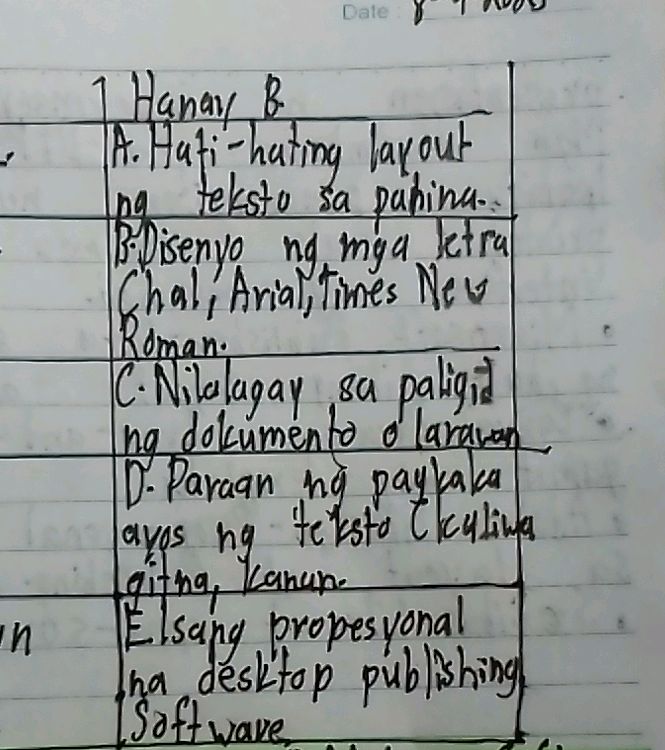 Date
Hanay B
A. Hati-hating layout
ng teksto sa pahina.
B. Disenyo ng mga letra
Chal, Arial, Times New
Roman.
C. Nilalagay sa paligid
ng dokumento o larawan
D. Paraan ng pagkaka
ayos ng teksto (kaliwa
gitna, kanan.
E Isang propesyonal
na desktop publishing
Software